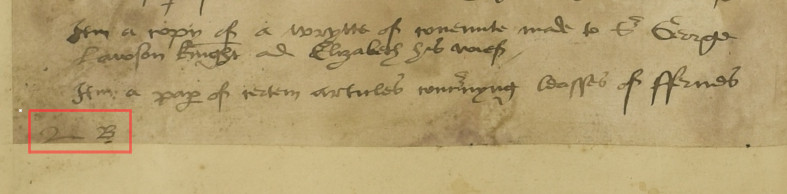 Itm a copy of a wrytte of covennte made to Sr George
Lawson knyght and Elizabeth his wief
Itm a pap of certen articles concnyng leasses of ffermes
B